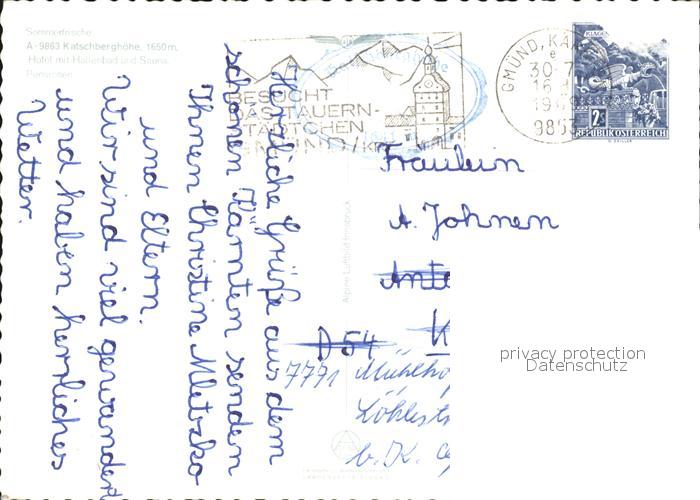 Sommerfrische
A-9863 Katschberghöhe, 1650 m,
Hotel mit Hallenbad und Sauna,
Pensionen
BESUCHT
DAS TAUERN-
STÄDTCHEN
GMÜND/KTN
GMÜND, KÄ
30.-7
16
9853
KLAGEN
2
REPUBLIK ÖSTERREICH
Herzliche Grüße aus dem
schönen Kärnten senden
Ihnen Christine Mletzko
und Eltern.
Wir sind viel gewandert
und haben herrliches
Wetter.
Alpine Luftbild Innsbruck
Fräulein
A. Johnen
D 54
7791
b. K.
privacy protection
Datenschutz